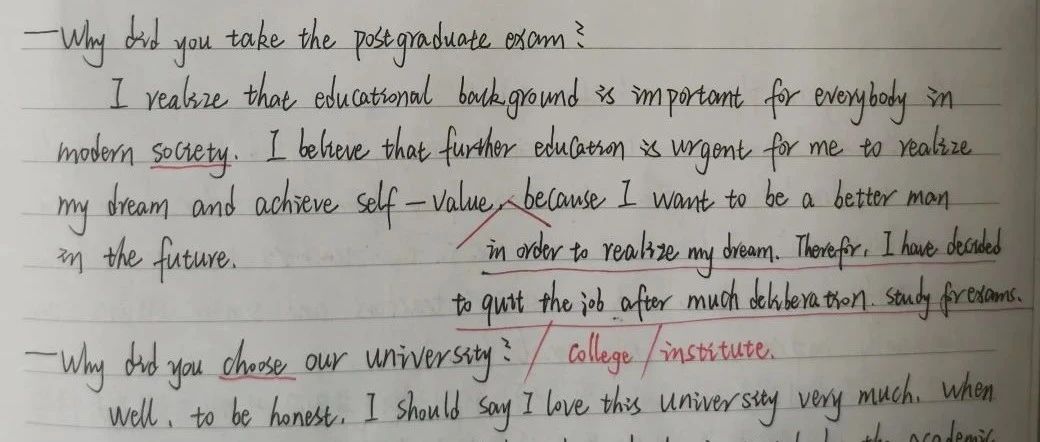 —Why did you take the postgraduate exam?
I realize that educational background is important for everybody in
modern society. I believe that further education is urgent for me to realize
my dream and achieve self-value, because I want to be a better man
in the future.
in order to realize my dream. Therefor, I have decided
to quit the job after much deliberation. study for exams.
—Why did you choose our university? / college / institute.
Well, to be honest, I should say I love this university very much. When
the academic